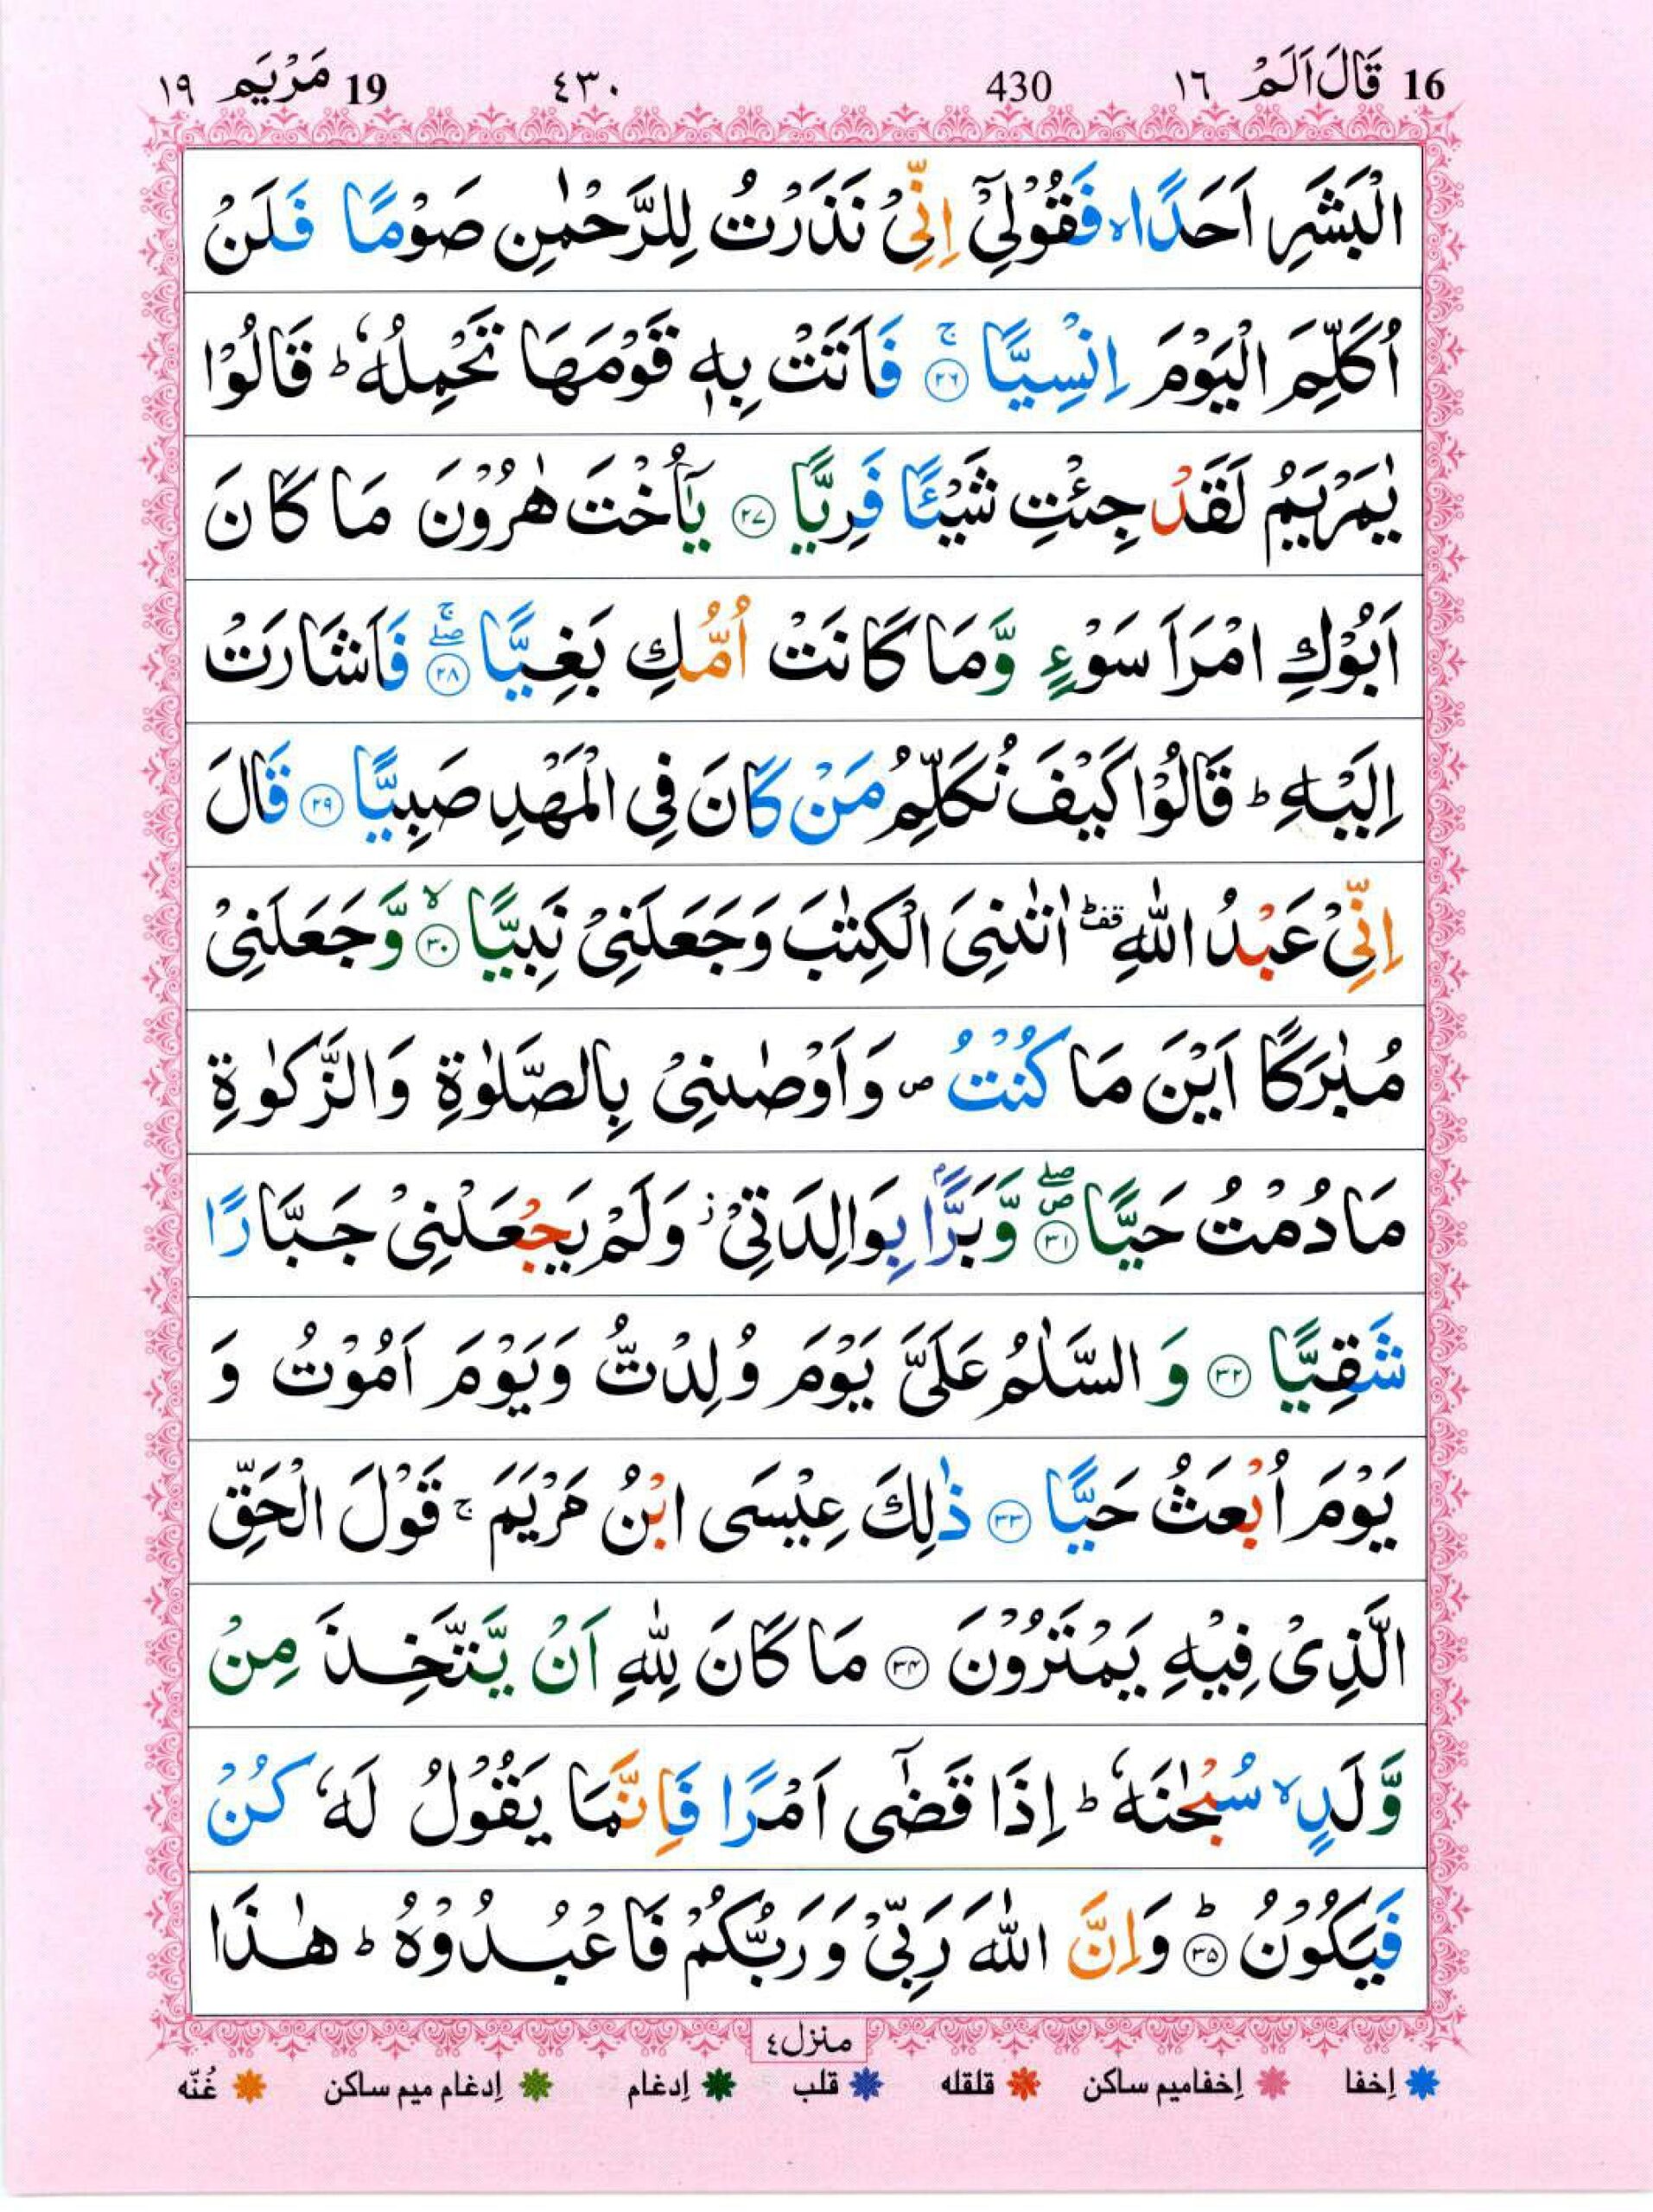 16 قَالَ اَلَمْ ١٦ 430 ٤٣٠ 19 مَرْيَم ١٩
الْبَشَرِ اَحَدًا ۙ فَقُوْلِیْۤ اِنِّیْ نَذَرْتُ لِلرَّحْمٰنِ صَوْمًا فَلَنْ
اُكَلِّمَ الْیَوْمَ اِنْسِیًّا ۚ۲۶ فَاَتَتْ بِهٖ قَوْمَهَا تَحْمِلُهٗ ؕ قَالُوْا
یٰمَرْیَمُ لَقَدْ جِئْتِ شَیْـًٔا فَرِیًّا ۲۷ یٰۤاُخْتَ هٰرُوْنَ مَا كَانَ
اَبُوْكِ امْرَاَ سَوْءٍ وَّمَا كَانَتْ اُمُّكِ بَغِیًّا ۖۚ۲۸ فَاَشَارَتْ
اِلَیْهِ ؕ قَالُوْا كَیْفَ نُكَلِّمُ مَنْ كَانَ فِی الْمَهْدِ صَبِیًّا ۲۹ قَالَ
اِنِّیْ عَبْدُ اللّٰهِ ؕ۫ اٰتٰىنِیَ الْكِتٰبَ وَجَعَلَنِیْ نَبِیًّا ۙ۳۰ وَّجَعَلَنِیْ
مُبٰرَكًا اَیْنَ مَا كُنْتُ ۪ وَاَوْصٰىنِیْ بِالصَّلٰوةِ وَالزَّكٰوةِ
مَا دُمْتُ حَیًّا ۪ۖ۳۱ وَّبَرًّۢا بِوَالِدَتِیْ ؗ وَلَمْ یَجْعَلْنِیْ جَبَّارًا
شَقِیًّا ۳۲ وَالسَّلٰمُ عَلَیَّ یَوْمَ وُلِدْتُّ وَیَوْمَ اَمُوْتُ وَ
یَوْمَ اُبْعَثُ حَیًّا ۳۳ ذٰلِكَ عِیْسَی ابْنُ مَرْیَمَ ۚ قَوْلَ الْحَقِّ
الَّذِیْ فِیْهِ یَمْتَرُوْنَ ۳۴ مَا كَانَ لِلّٰهِ اَنْ یَّتَّخِذَ مِنْ
وَّلَدٍ ۙ سُبْحٰنَهٗ ؕ اِذَا قَضٰۤی اَمْرًا فَاِنَّمَا یَقُوْلُ لَهٗ كُنْ
فَیَكُوْنُ ؕ۳۵ وَاِنَّ اللّٰهَ رَبِّیْ وَرَبُّكُمْ فَاعْبُدُوْهُ ؕ هٰذَا
منزل٤
اِخفا اِخفامیم ساكن قلقله قلب اِدغام اِدغام میم ساكن غُنّه